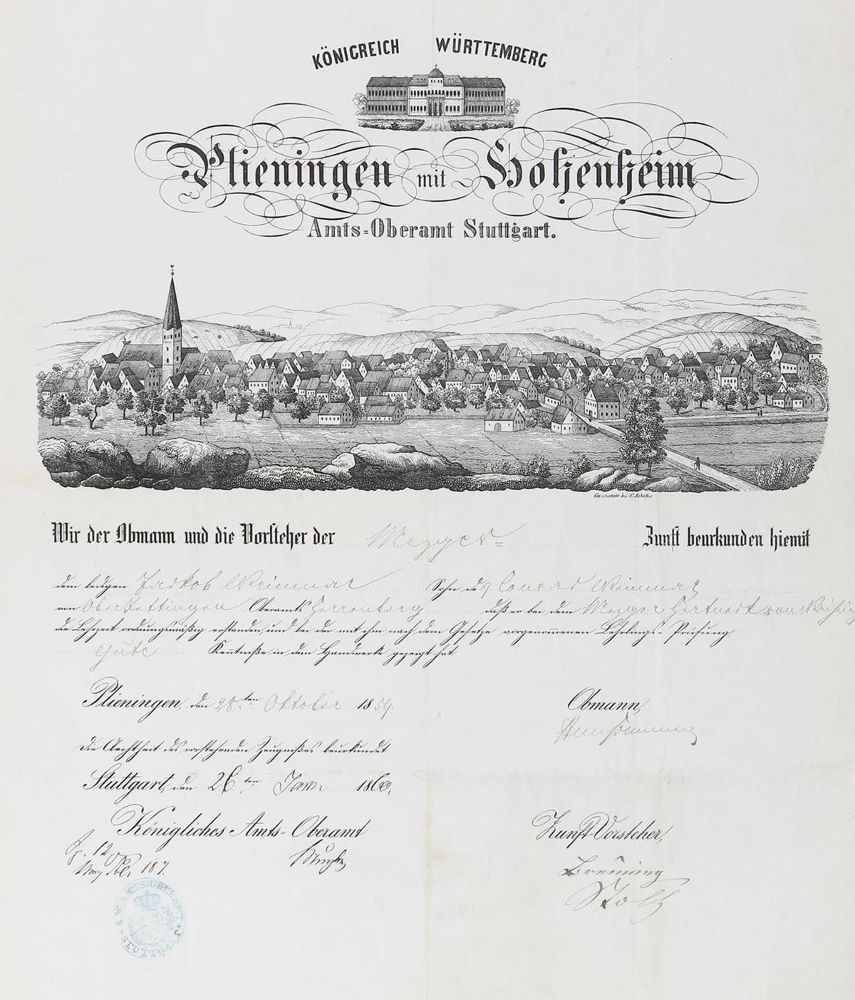 KÖNIGREICH WÜRTTEMBERG
Plieningen mit Hohenheim
Amts-Oberamt Stuttgart.
Wir der Obmann und die Vorsteher der Mezger- Zunft beurkunden hiemit
dem ledigen Jakob Weinmar Sohn des Conrad Weinmar
von Oberjettingen Oberamts Herrenberg daß er bei dem Mezger von
die Lehrzeit ordnungsmäßig erstanden, und bei der mit ihm nach dem Gesetze vorgenommenen Lehrlings-Prüfung
gute Kentniße in dem Handwerk gezeigt hat
Plieningen, den 28ten Oktober 1859. Obmann,
Die Aechtheit des vorstehenden Zeugnißes beurkundet
Stuttgart, den 26ten Jan. 1860.
Königliches Amts-Oberamt Zunft-Vorsteher,
Breuning
Stolz